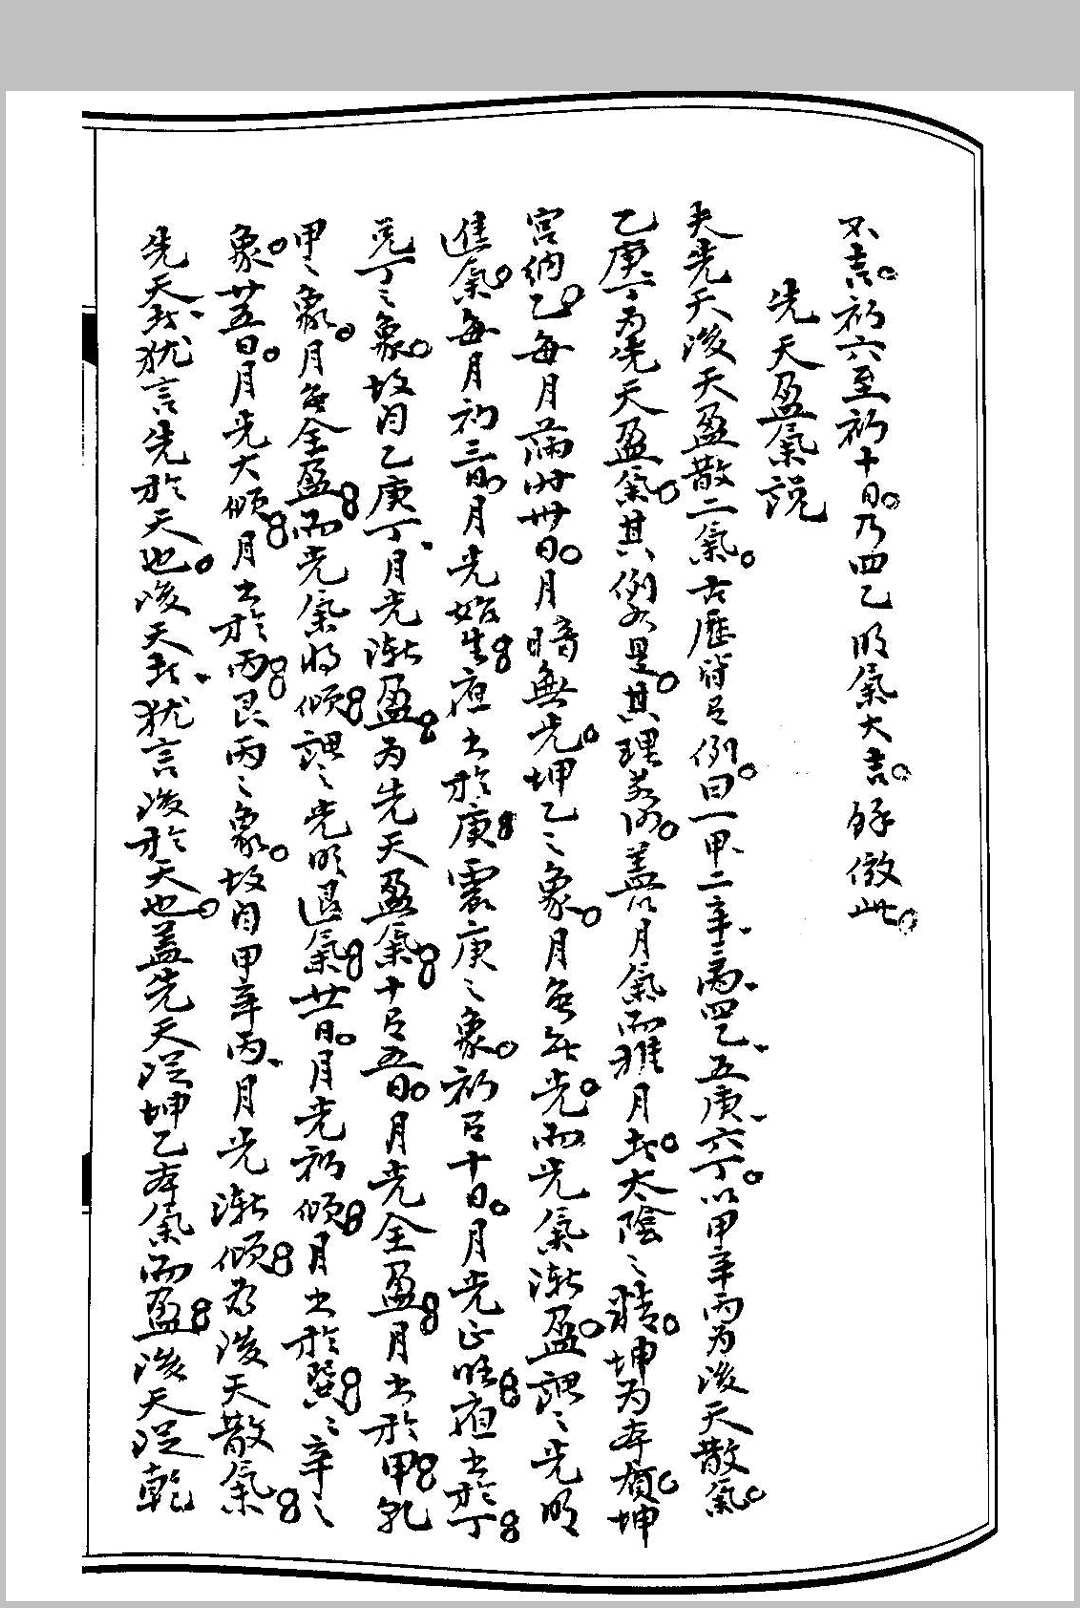 不吉初六至初十日乃四乙明氣大吉餘倣此
先天盈氣説
夫先天後天盈散二氣古歷皆呂例曰一甲二辛三丙四乙五庚六丁以甲辛丙为後天散氣
乙庚丁为先天盈氣其例如是其理若何蓋月氣而推月者太陰之精坤为本質坤
宮納乙每月滿時卅日月暗無光坤乙之象月每無光而光氣漸盈謂之光明
進氣每月初三日月光始生夜出於庚震庚之象初呂十日月光正旺夜出於丁
兑丁之象故自乙庚丁月光漸盈为先天盈氣十呂五日月光全盈月出於甲乳
甲之象月每全盈而光氣将傾謂之光明退氣廿日月光初傾月出於巽之辛之
象廿五日月光大傾月出於丙艮丙之象故自甲辛丙月光漸傾为後天散氣
先天者犹言先於天也後天者犹言後於天也蓋先天從坤乙本氣而盈後天從乾